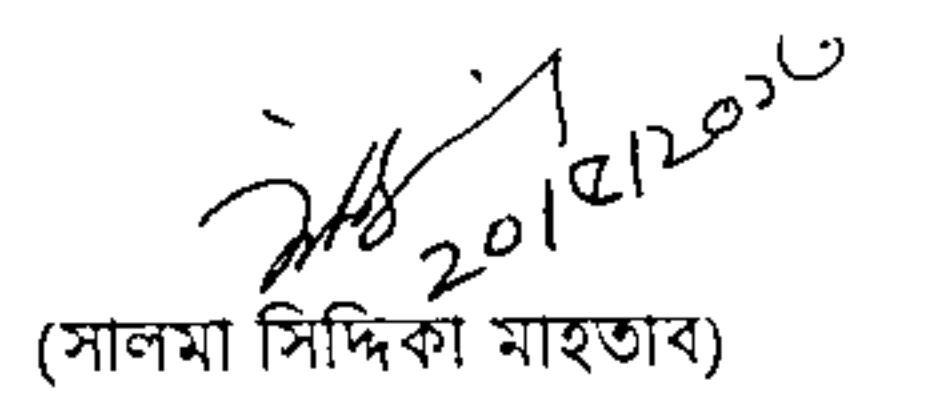 ২০/৫/২০১৩
(সালমা সিদ্দিকা মাহতাব)